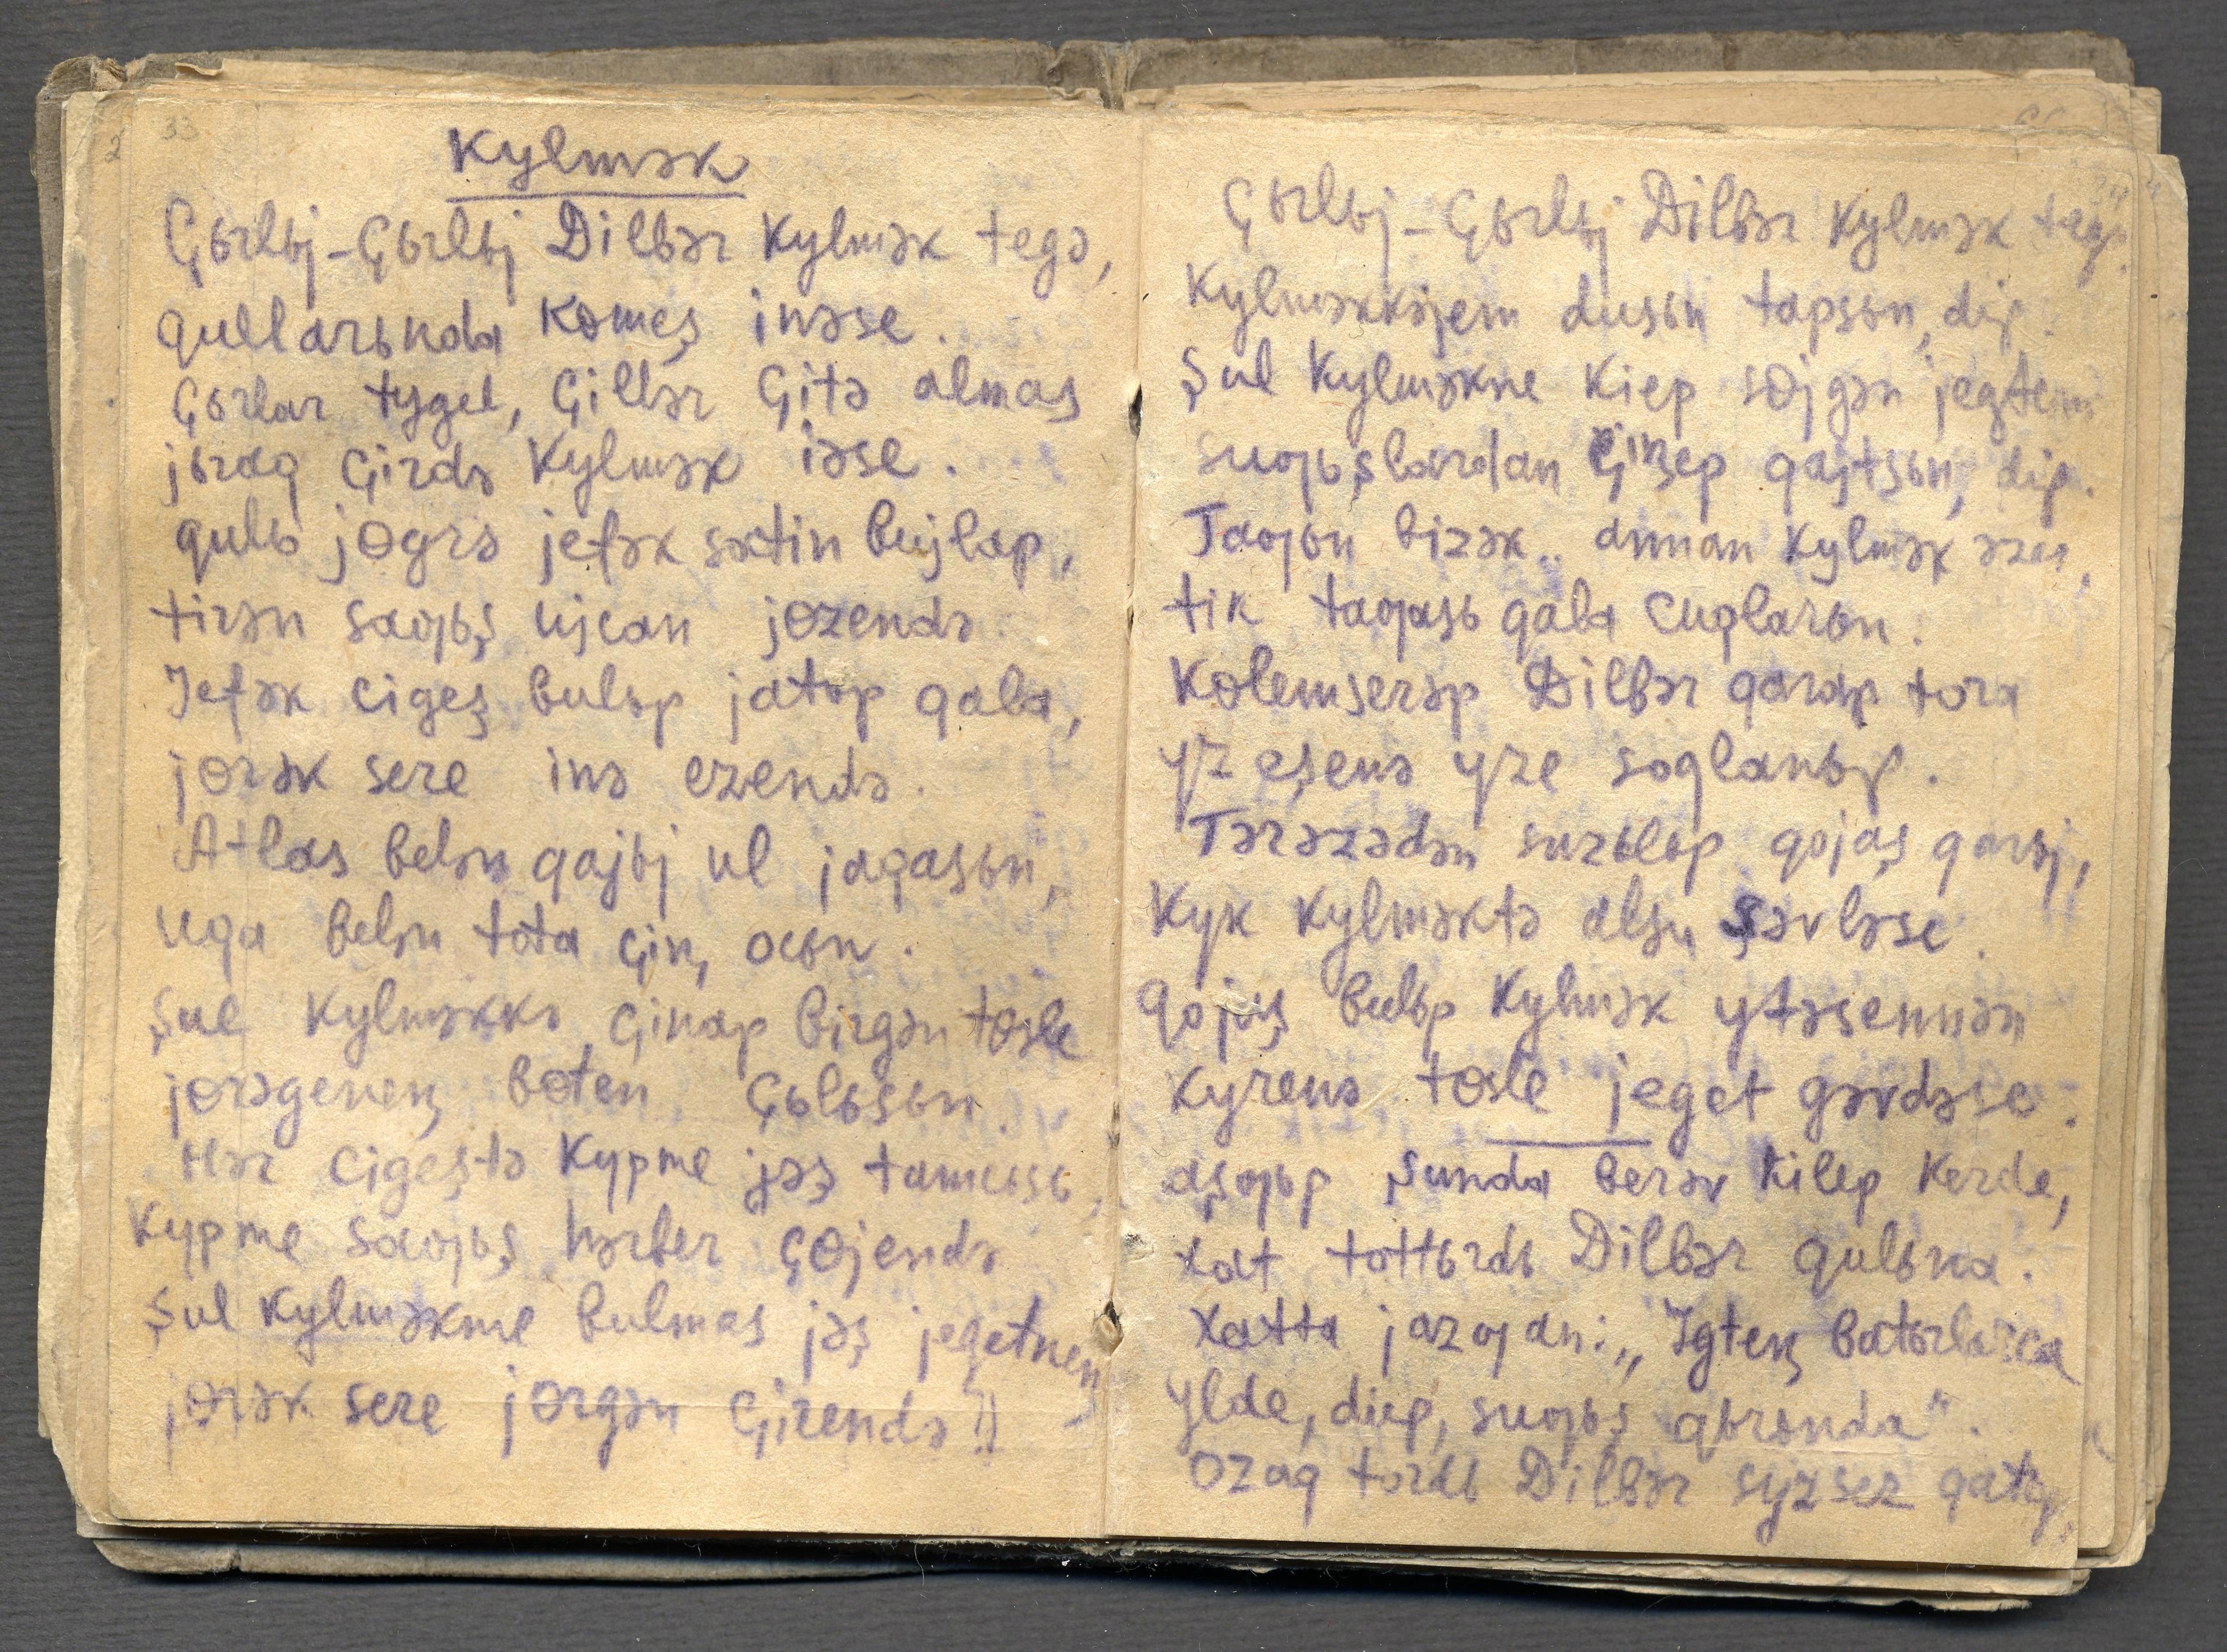 33
Kylmək
Çьrlьj-Çьrlьj Dilbər Kylmək tegə,
qullarьnda Kɵmeş inəse.
Çьrlar tygel, Çillər Çitə almas
jьraq Çirdə Kylmək iəse.
qulь jɵgrə jefək satin bujlap,
tirən saƣьş ujcan jɵzendə.
Jefək cigeş bulьp jatьp qala,
jɵrək sere inə ezendə.
Atlas belən qajьj ul jaqasьn,
uqa belən tota Çiꞑ ocьn.
Şul Kylməkkə Çinap birgən tɵsle
jɵrəgeneꞑ bɵten Çьlьsьn.
Hər cigeştə Kypme jəş tamcьsь,
Kypme saƣьş hərber Çɵjendə
Şul Kylməkme bulmas jəş jegetneꞑ
jɵrək sere jɵrgən Çirendə?!
Çьrlьj-Çьrlьj Dilbər Kylmək tegə.
Kylməkkəjem dusьn tapsьn, dip.
Şul Kylməkne Kiep sɵjgən jegtem
suƣьşlardan Çiꞑep qajtsьn, dip.
Taƣьn bizək.. annan Kylmək əzer,
tik taƣasь qala cuqlarьn.
Kɵlemserəp Dilbər qarap tora
yz eşenə yze soqlanьp.
Tərəzədən suzьlьp qojaş qarьj,
Kyk Kylməktə alsu şəvləse.
qojaş bulьp Kylmək ytəsennən
Kyrenə tɵsle jeget gəvdəse.
aşƣьp şunda berəv Kilep Kerde,
xat tottьrdь Dilbər qulьna.
Xatta jazƣan: „Igteꞑ batьrlarca
ylde, diep, suƣьş qьrьnda".
ozaq tordь Dilbər syzsez qatьp,